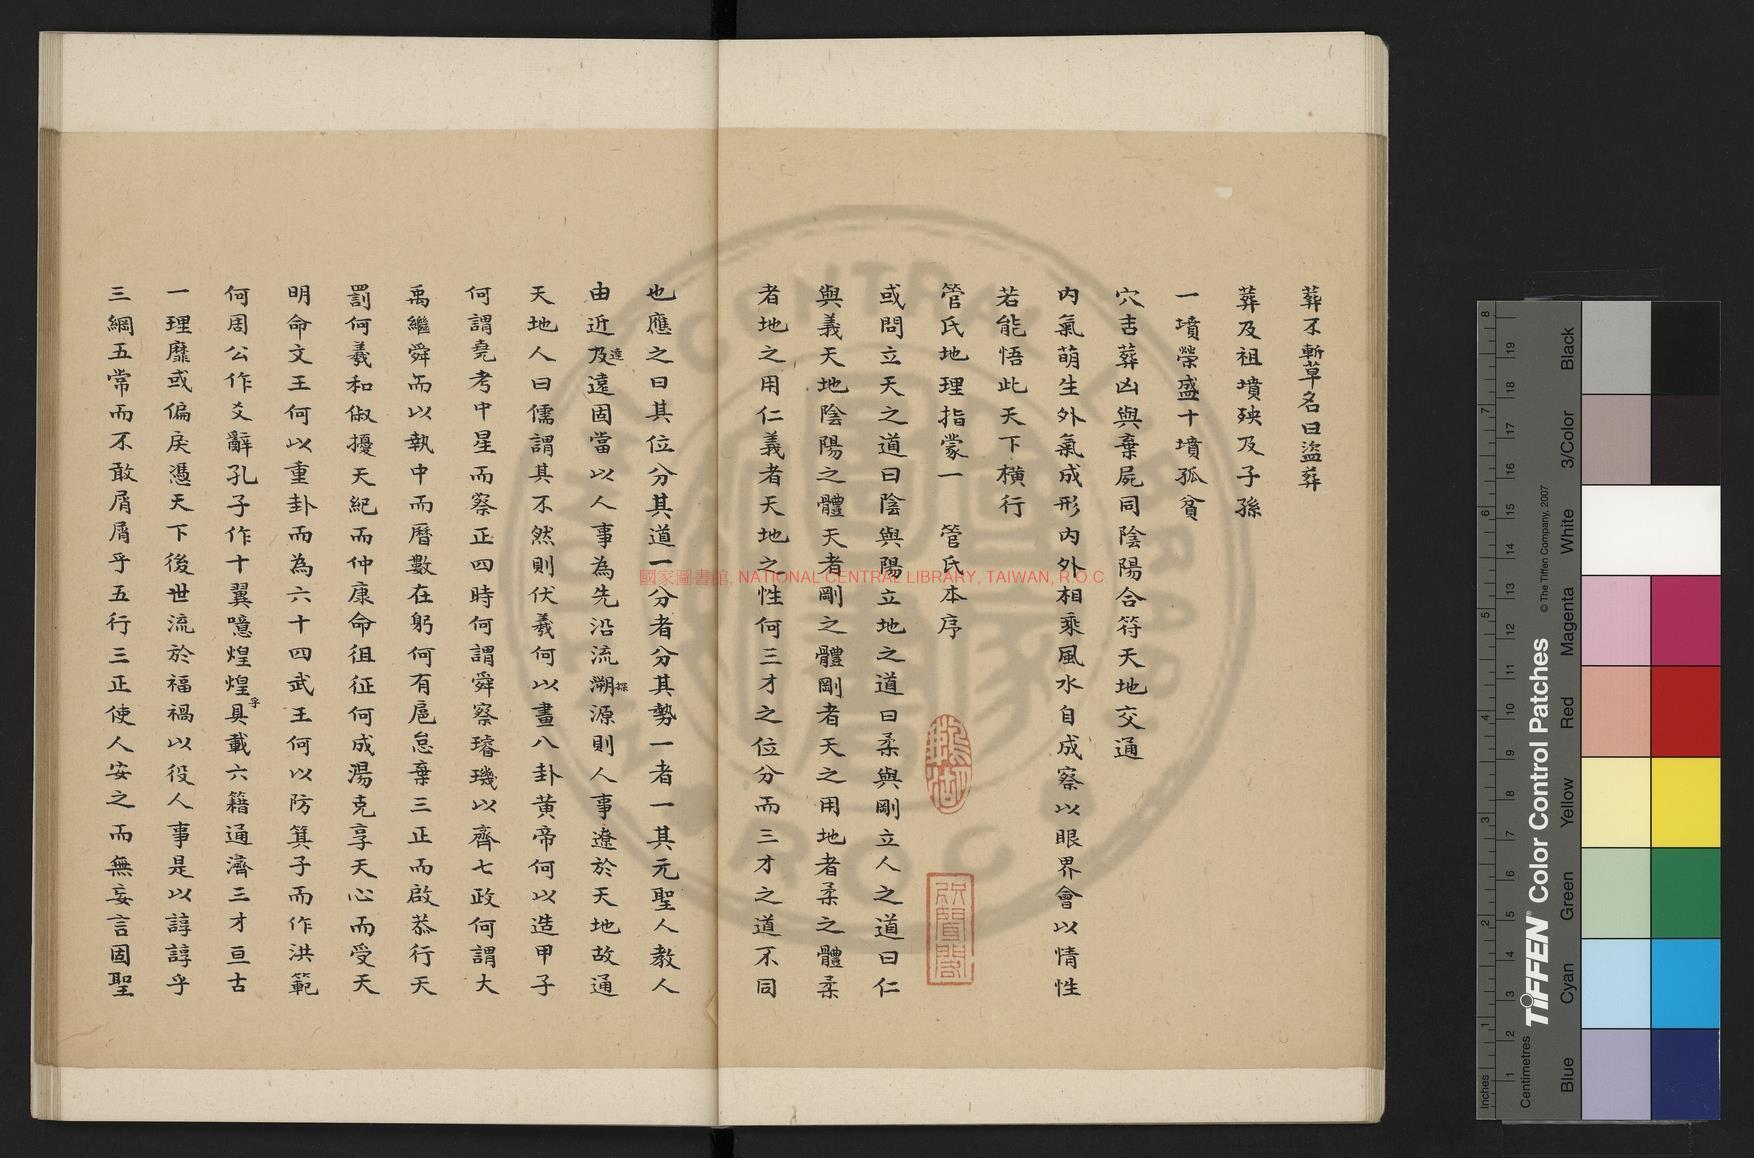 葬不斬草名曰盜葬
葬及祖墳殃及子孫
一墳榮盛十墳孤貧
穴吉葬凶與棄屍同陰陽合符天地交通
內氣萌生外氣成形內外相乘風水自成察以眼界會以情性
若能悟此天下橫行
管氏地理指蒙一 管氏本序
或問立天之道曰陰與陽立地之道曰柔與剛立人之道曰仁
與義天地陰陽之體天者剛之體剛者天之用地者柔之體柔
者地之用仁義者天地之性何三才之位分而三才之道不同
也應之曰其位分其道一分者分其勢一者一其元聖人教人
由近及達遠固當以人事為先沿流溯探源則人事遼於天地故通
天地人曰儒謂其不然則伏羲何以畫八卦黃帝何以造甲子
何謂堯考中星而察正四時何謂舜察璿璣以齊七政何謂大
禹繼舜而以執中而曆數在躬何有扈怠棄三正而啟恭行天
罰何羲和俶擾天紀而仲康命徂征何成湯克享天心而受天
明命文王何以重卦而為六十四武王何以防箕子而作洪範
何周公作爻辭孔子作十翼噫煌煌乎具載六籍通濟三才亘古
一理靡或偏戾憑天下後世流於福禍以役人事是以諄諄乎
三綱五常而不敢屑屑乎五行三正使人安之而無妄言固聖
國家圖書館, NATIONAL CENTRAL LIBRARY, TAIWAN, R.O.C.
TIFFEN® Color Control Patches
© The Tiffen Company, 2007
Inches
Centimetres
Blue
Cyan
Green
Yellow
Red
Magenta
White
3/Color
Black